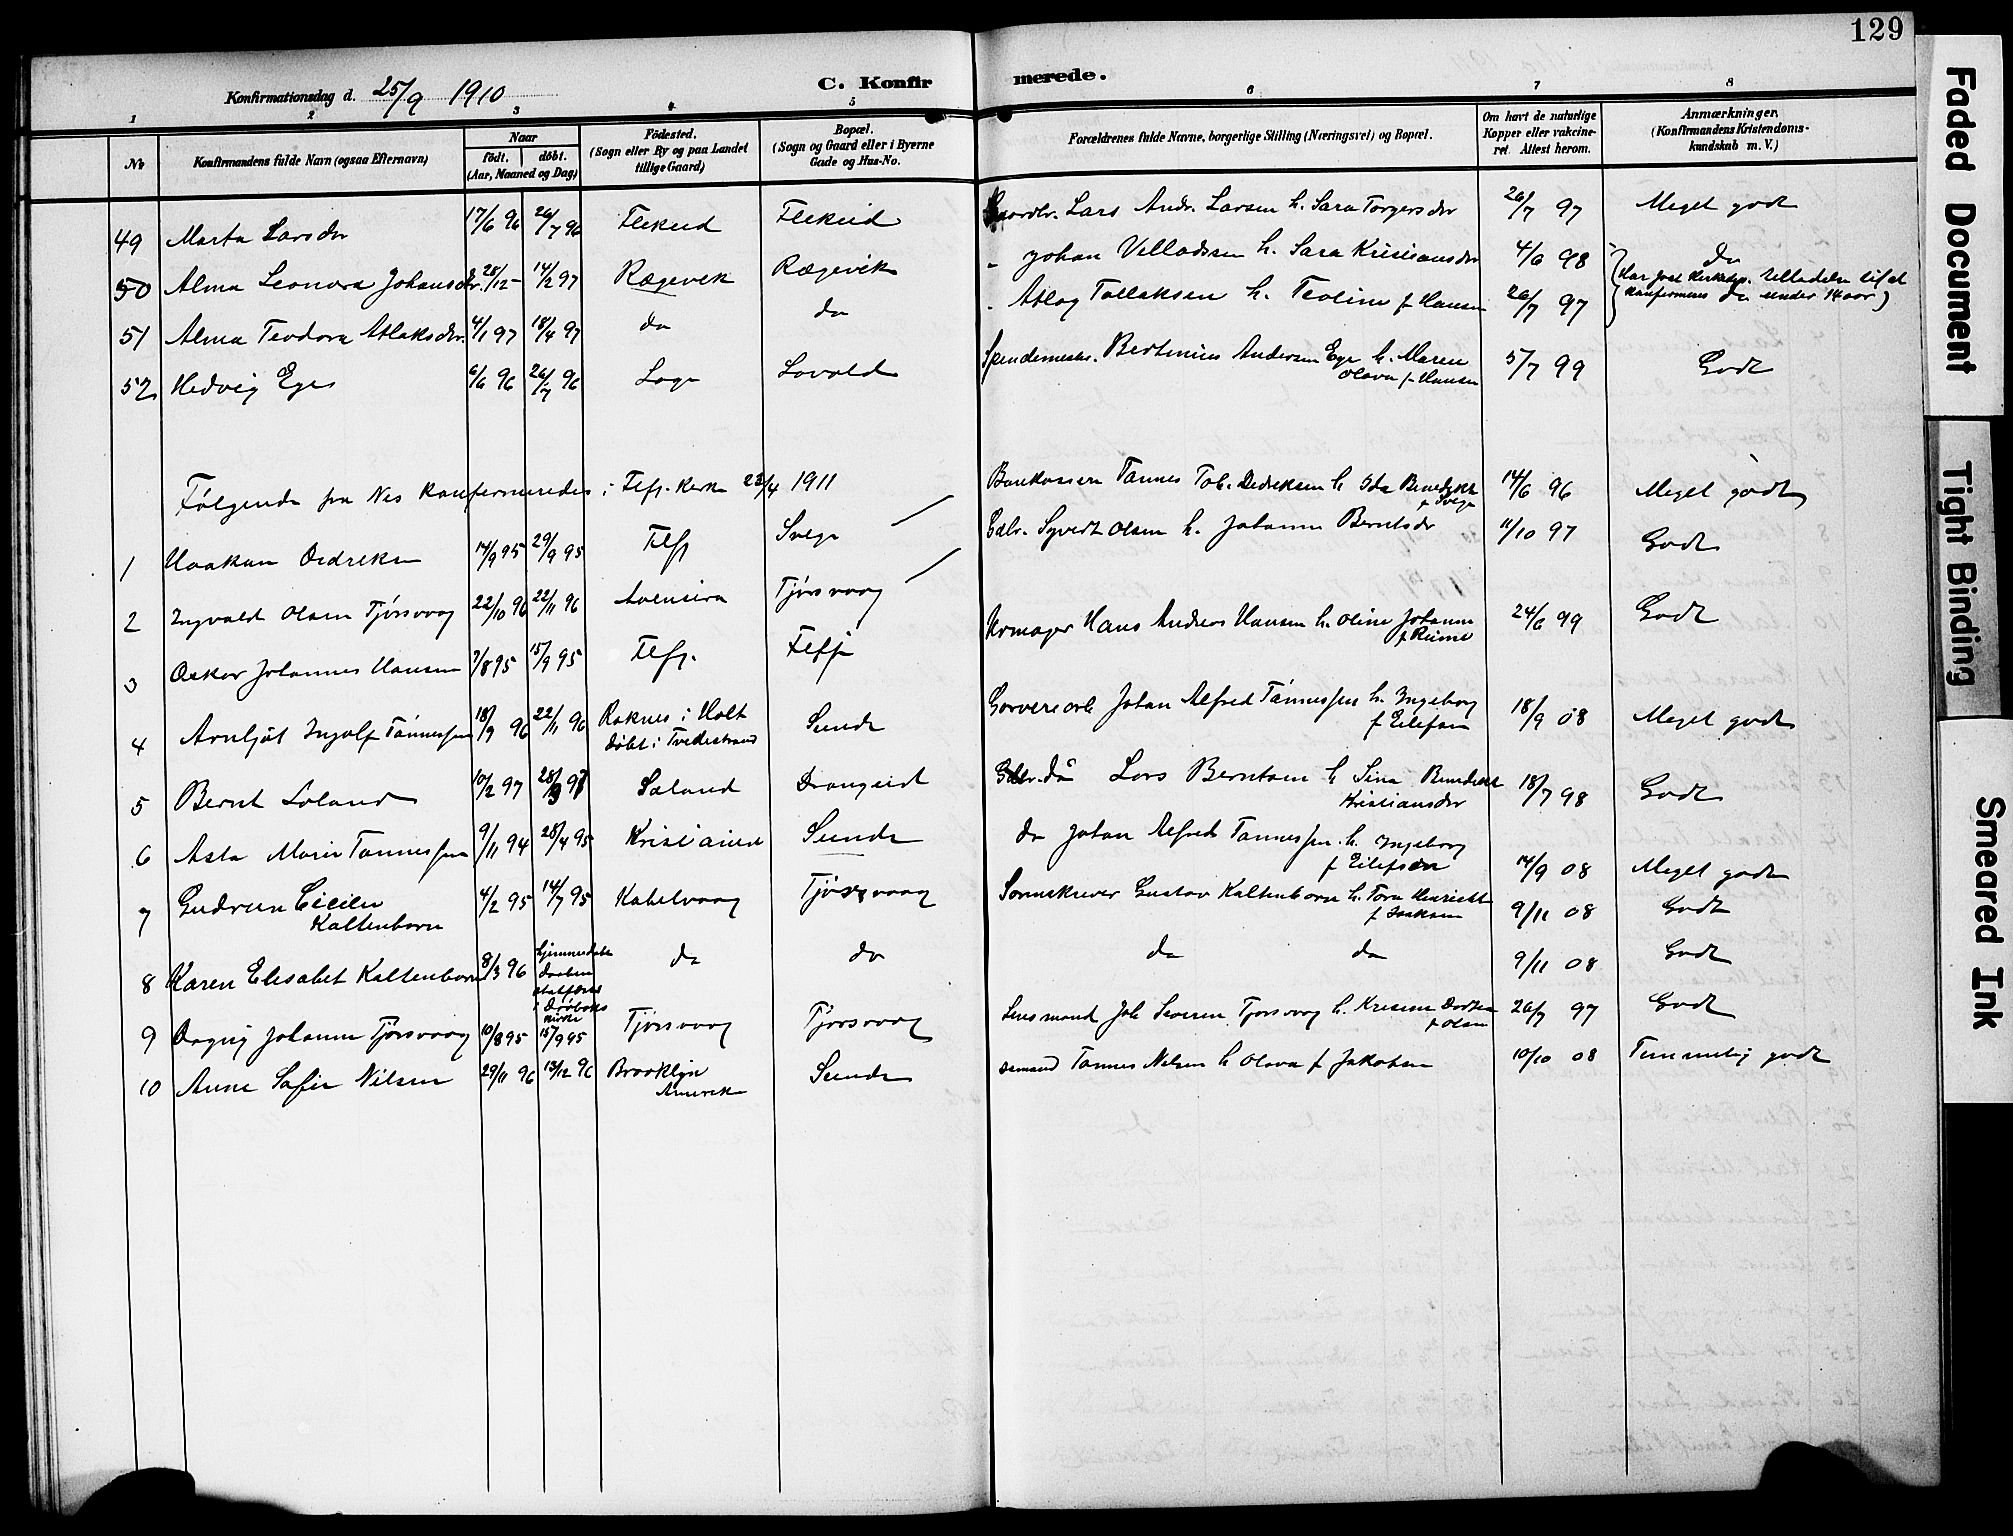 129
Konfirmationsdag d. 25/9 1910
C. Konfirmerede.
1 2 3 4 5 6 7 8
No
Konfirmandens fulde Navn (ogsaa Efternavn)
Naar
født. døbt.
(Aar, Maaned og Dag)
Fødested.
(Sogn eller By og paa Landet
tillige Gaard)
Bopæl.
(Sogn og Gaard eller i Byerne
Gade og Hus-No.
Forældrenes fulde Navne, borgerlige Stilling (Næringsvei) og Bopæl.
Om havt de naturlige
Kopper eller vakcine-
ret. Attest herom.
Anmærkninger.
(Konfirmandens Kristendoms-
kundskab m. V.)
49 Marta Larsdr 17/6 96 26/7 96 Flekeid Flekeid Gaardbr. Lars Andr. Larsen h. Sara Torgersdr 26/7 97 Meget godt
50 Alma Leonora Johansdr. 28/12 - 14/2 97 Rægevik Rægevik " Johan Velladsen h. Sara Kristiansdr 4/6 98 do
51 Alma Teodora Atlaksdr. 4/1 97 18/4 97 do do " Atlag Tollaksen h. Teoline f. Hansen 26/7 97 do
under 14 aar)
52 Hedvig Ege 6/6 96 26/7 96 Loge Lovold Bertinius Andersen Ege h. Maren
Olava f. Hansen 5/7 99 Godt
Følgende fra Nes konfirmeredes i Flef. kirke 23/4 1911
1 Haakon Dedreksen 14/9 95 29/9 95 Flef. Svege Tønnes Tob. Dedreksen h. Ida Benedikte
f. Svege 14/6 96 Meget godt
2 Ingvald Olsen Tjørsvaag 22/10 96 22/11 96 Aaensira Tjørsvaag Gdbr. Syvert Olsen h. Johanne Berntsdr 11/10 97 Godt
3 Oskar Johannes Hansen 7/8 95 15/9 95 Flef. Flekf. Urmager Hans Andreas Hansen h. Oline Johanne
f. Reime 24/6 99 Godt
4 Arnljot Ingolf Tønnessen 18/9 96 22/11 96 Raknes i Holt
døbt i Tvedestrand Sunde Johan Alfred Tønnessen h. Ingeborg
f. Eilefsen 18/9 08 Meget godt
5 Bernt Soland 10/2 97 28/3 97 Søland Drangeid Lars Berntsen h. Sina Benedikte
Kristiansdr 18/7 98 Godt
6 Asta Marie Tønnessen 9/11 94 28/4 95 Kristiania Sunde do Johan Alfred Tønnessen h. Ingeborg
f. Eilefsen 14/9 08 Meget godt
7 Gudrun Cicilie
Kaltenborn 4/2 95 14/7 95 Kabelvaag Tjørsvaag Sorenskriver Gustav Kaltenborn h. Tora Henriette
f. Isaksen 9/11 08 Godt
8 Karen Elisabet Kaltenborn 8/3 96 hjemmedøbt
daaben
stadfæstet
i Drøbaks
kirke do do do do 9/11 08 Godt
9 Dagny Johanne Tjørsvaag 10/8 95 15/9 95 Tjørsvaag Tjørsvaag Lensmand Joh. Severin Tjørsvaag h. Kristine Dorthea
f. Olsen 26/7 97 Godt
10 Anne Sofie Nilsen 29/11 96 13/12 96 Brooklyn
Amerika Sunde Sømand Tønnes Nilsen h. Olava f. Jakobsen 10/10 08 Temmelig godt
Faded Document
Tight Binding
Smeared Ink